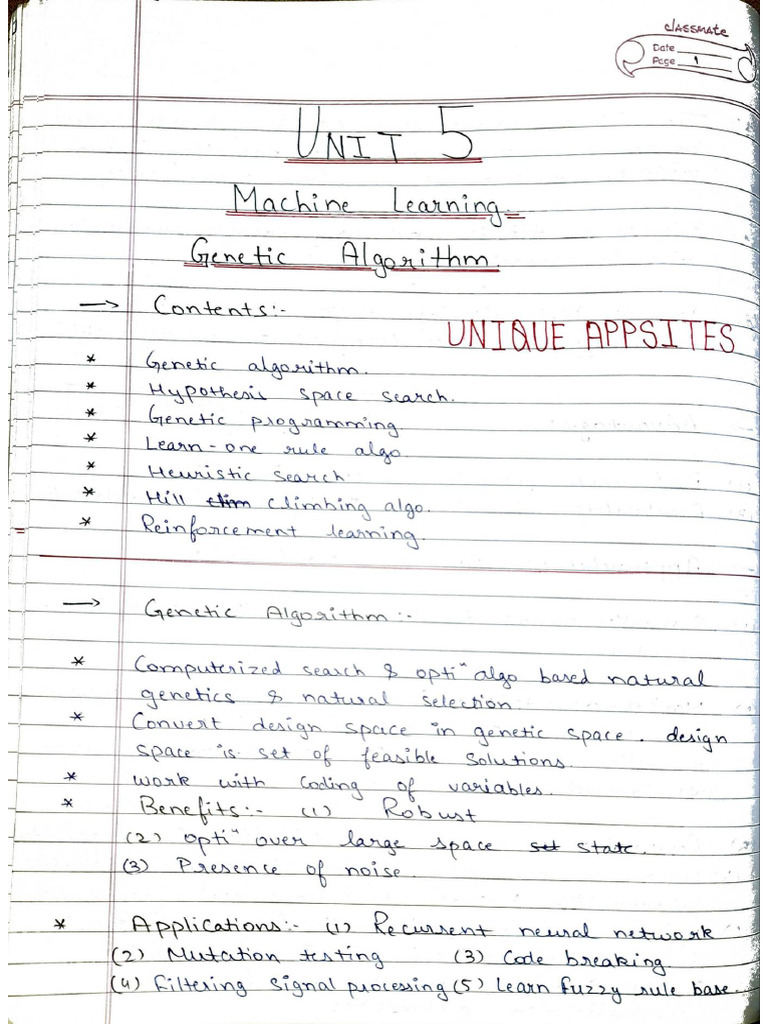 classmate
Date
Page 1
UNIT 5
Machine Learning.
Genetic Algorithm.
→ Contents:-
UNIQUE APPSITES
* Genetic algorithm.
* Hypothesis space search.
* Genetic programming
* Learn-one rule algo
* Heuristic search
* Hill clim climbing algo.
* Reinforcement learning.
→ Genetic Algorithm:-
* Computerized search & optiⁿ algo based natural
genetics & natural selection
* Convert design space in genetic space. design
space is set of feasible solutions.
* work with coding of variables.
* Benefits:- (1) Robust
(2) optiⁿ over large space set state.
(3) Presence of noise.
* Applications:- (1) Recurrent neural network
(2) Mutation testing (3) Code breaking.
(4) Filtering signal processing (5) Learn fuzzy rule base.